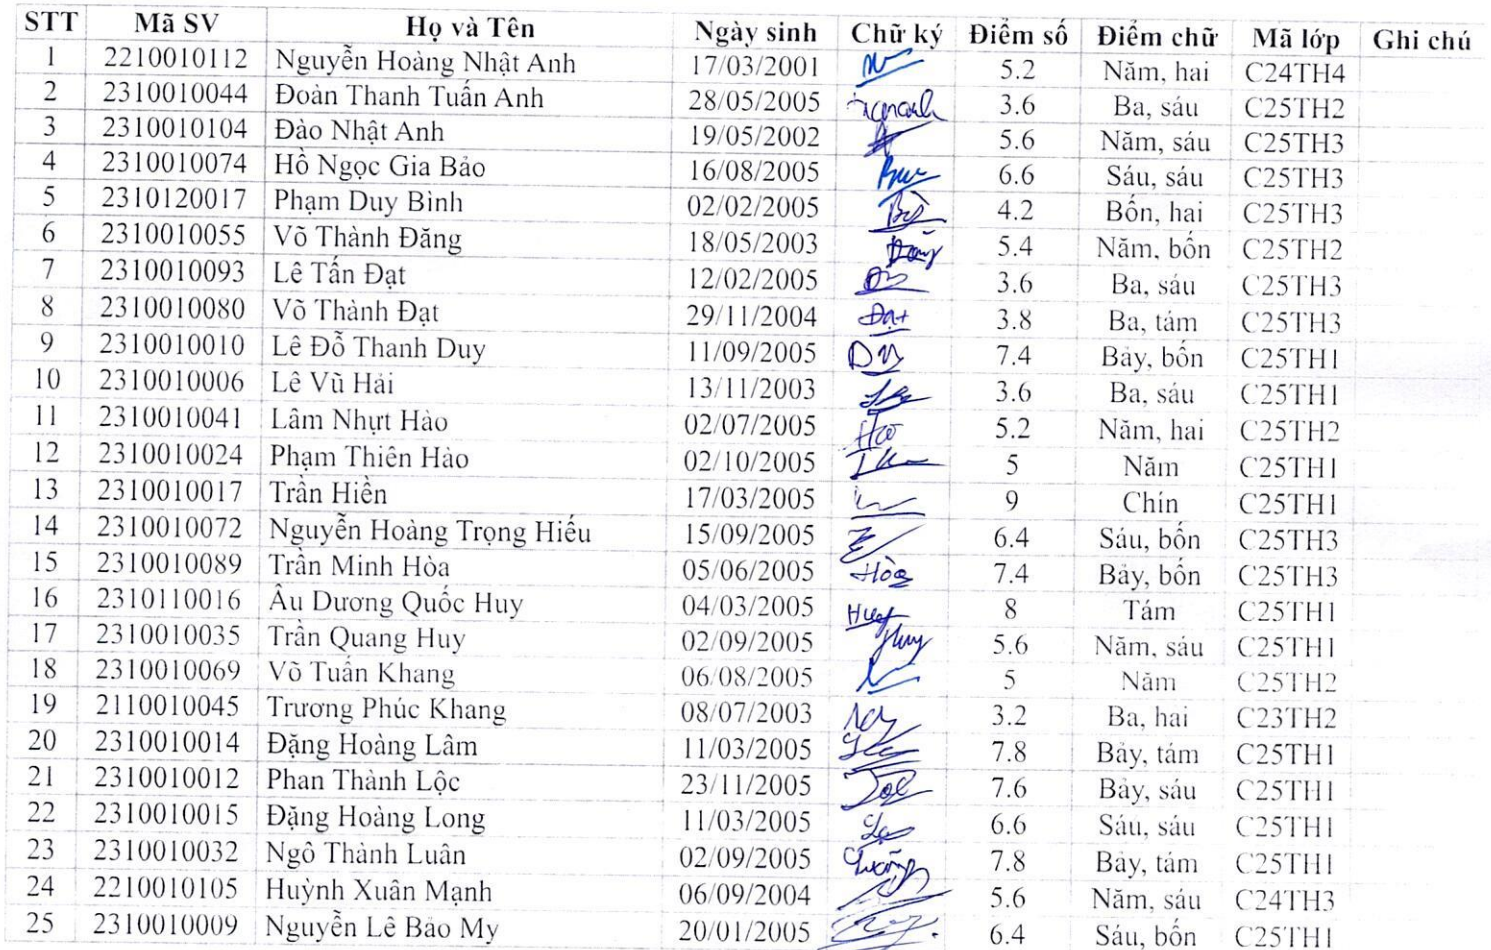 STT Mã SV Họ và Tên Ngày sinh Chữ ký Điểm số Điểm chữ Mã lớp Ghi chú
1 2210010112 Nguyễn Hoàng Nhật Anh 17/03/2001 5.2 Năm, hai C24TH4
2 2310010044 Đoàn Thanh Tuấn Anh 28/05/2005 3.6 Ba, sáu C25TH2
3 2310010104 Đào Nhật Anh 19/05/2002 5.6 Năm, sáu C25TH3
4 2310010074 Hồ Ngọc Gia Bảo 16/08/2005 6.6 Sáu, sáu C25TH3
5 2310120017 Phạm Duy Bình 02/02/2005 4.2 Bốn, hai C25TH3
6 2310010055 Võ Thành Đăng 18/05/2003 Đăng 5.4 Năm, bốn C25TH2
7 2310010093 Lê Tấn Đạt 12/02/2005 3.6 Ba, sáu C25TH3
8 2310010080 Võ Thành Đạt 29/11/2004 Đạt 3.8 Ba, tám C25TH3
9 2310010010 Lê Đỗ Thanh Duy 11/09/2005 7.4 Bảy, bốn C25TH1
10 2310010006 Lê Vũ Hải 13/11/2003 3.6 Ba, sáu C25TH1
11 2310010041 Lâm Nhựt Hào 02/07/2005 5.2 Năm, hai C25TH2
12 2310010024 Phạm Thiên Hào 02/10/2005 5 Năm C25TH1
13 2310010017 Trần Hiền 17/03/2005 9 Chín C25TH1
14 2310010072 Nguyễn Hoàng Trọng Hiếu 15/09/2005 6.4 Sáu, bốn C25TH3
15 2310010089 Trần Minh Hòa 05/06/2005 Hòa 7.4 Bảy, bốn C25TH3
16 2310110016 Âu Dương Quốc Huy 04/03/2005 Huy 8 Tám C25TH1
17 2310010035 Trần Quang Huy 02/09/2005 Huy 5.6 Năm, sáu C25TH1
18 2310010069 Võ Tuấn Khang 06/08/2005 5 Năm C25TH2
19 2110010045 Trương Phúc Khang 08/07/2003 3.2 Ba, hai C23TH2
20 2310010014 Đặng Hoàng Lâm 11/03/2005 7.8 Bảy, tám C25TH1
21 2310010012 Phan Thành Lộc 23/11/2005 7.6 Bảy, sáu C25TH1
22 2310010015 Đặng Hoàng Long 11/03/2005 6.6 Sáu, sáu C25TH1
23 2310010032 Ngô Thành Luân 02/09/2005 7.8 Bảy, tám C25TH1
24 2210010105 Huỳnh Xuân Mạnh 06/09/2004 5.6 Năm, sáu C24TH3
25 2310010009 Nguyễn Lê Bảo My 20/01/2005 6.4 Sáu, bốn C25TH1